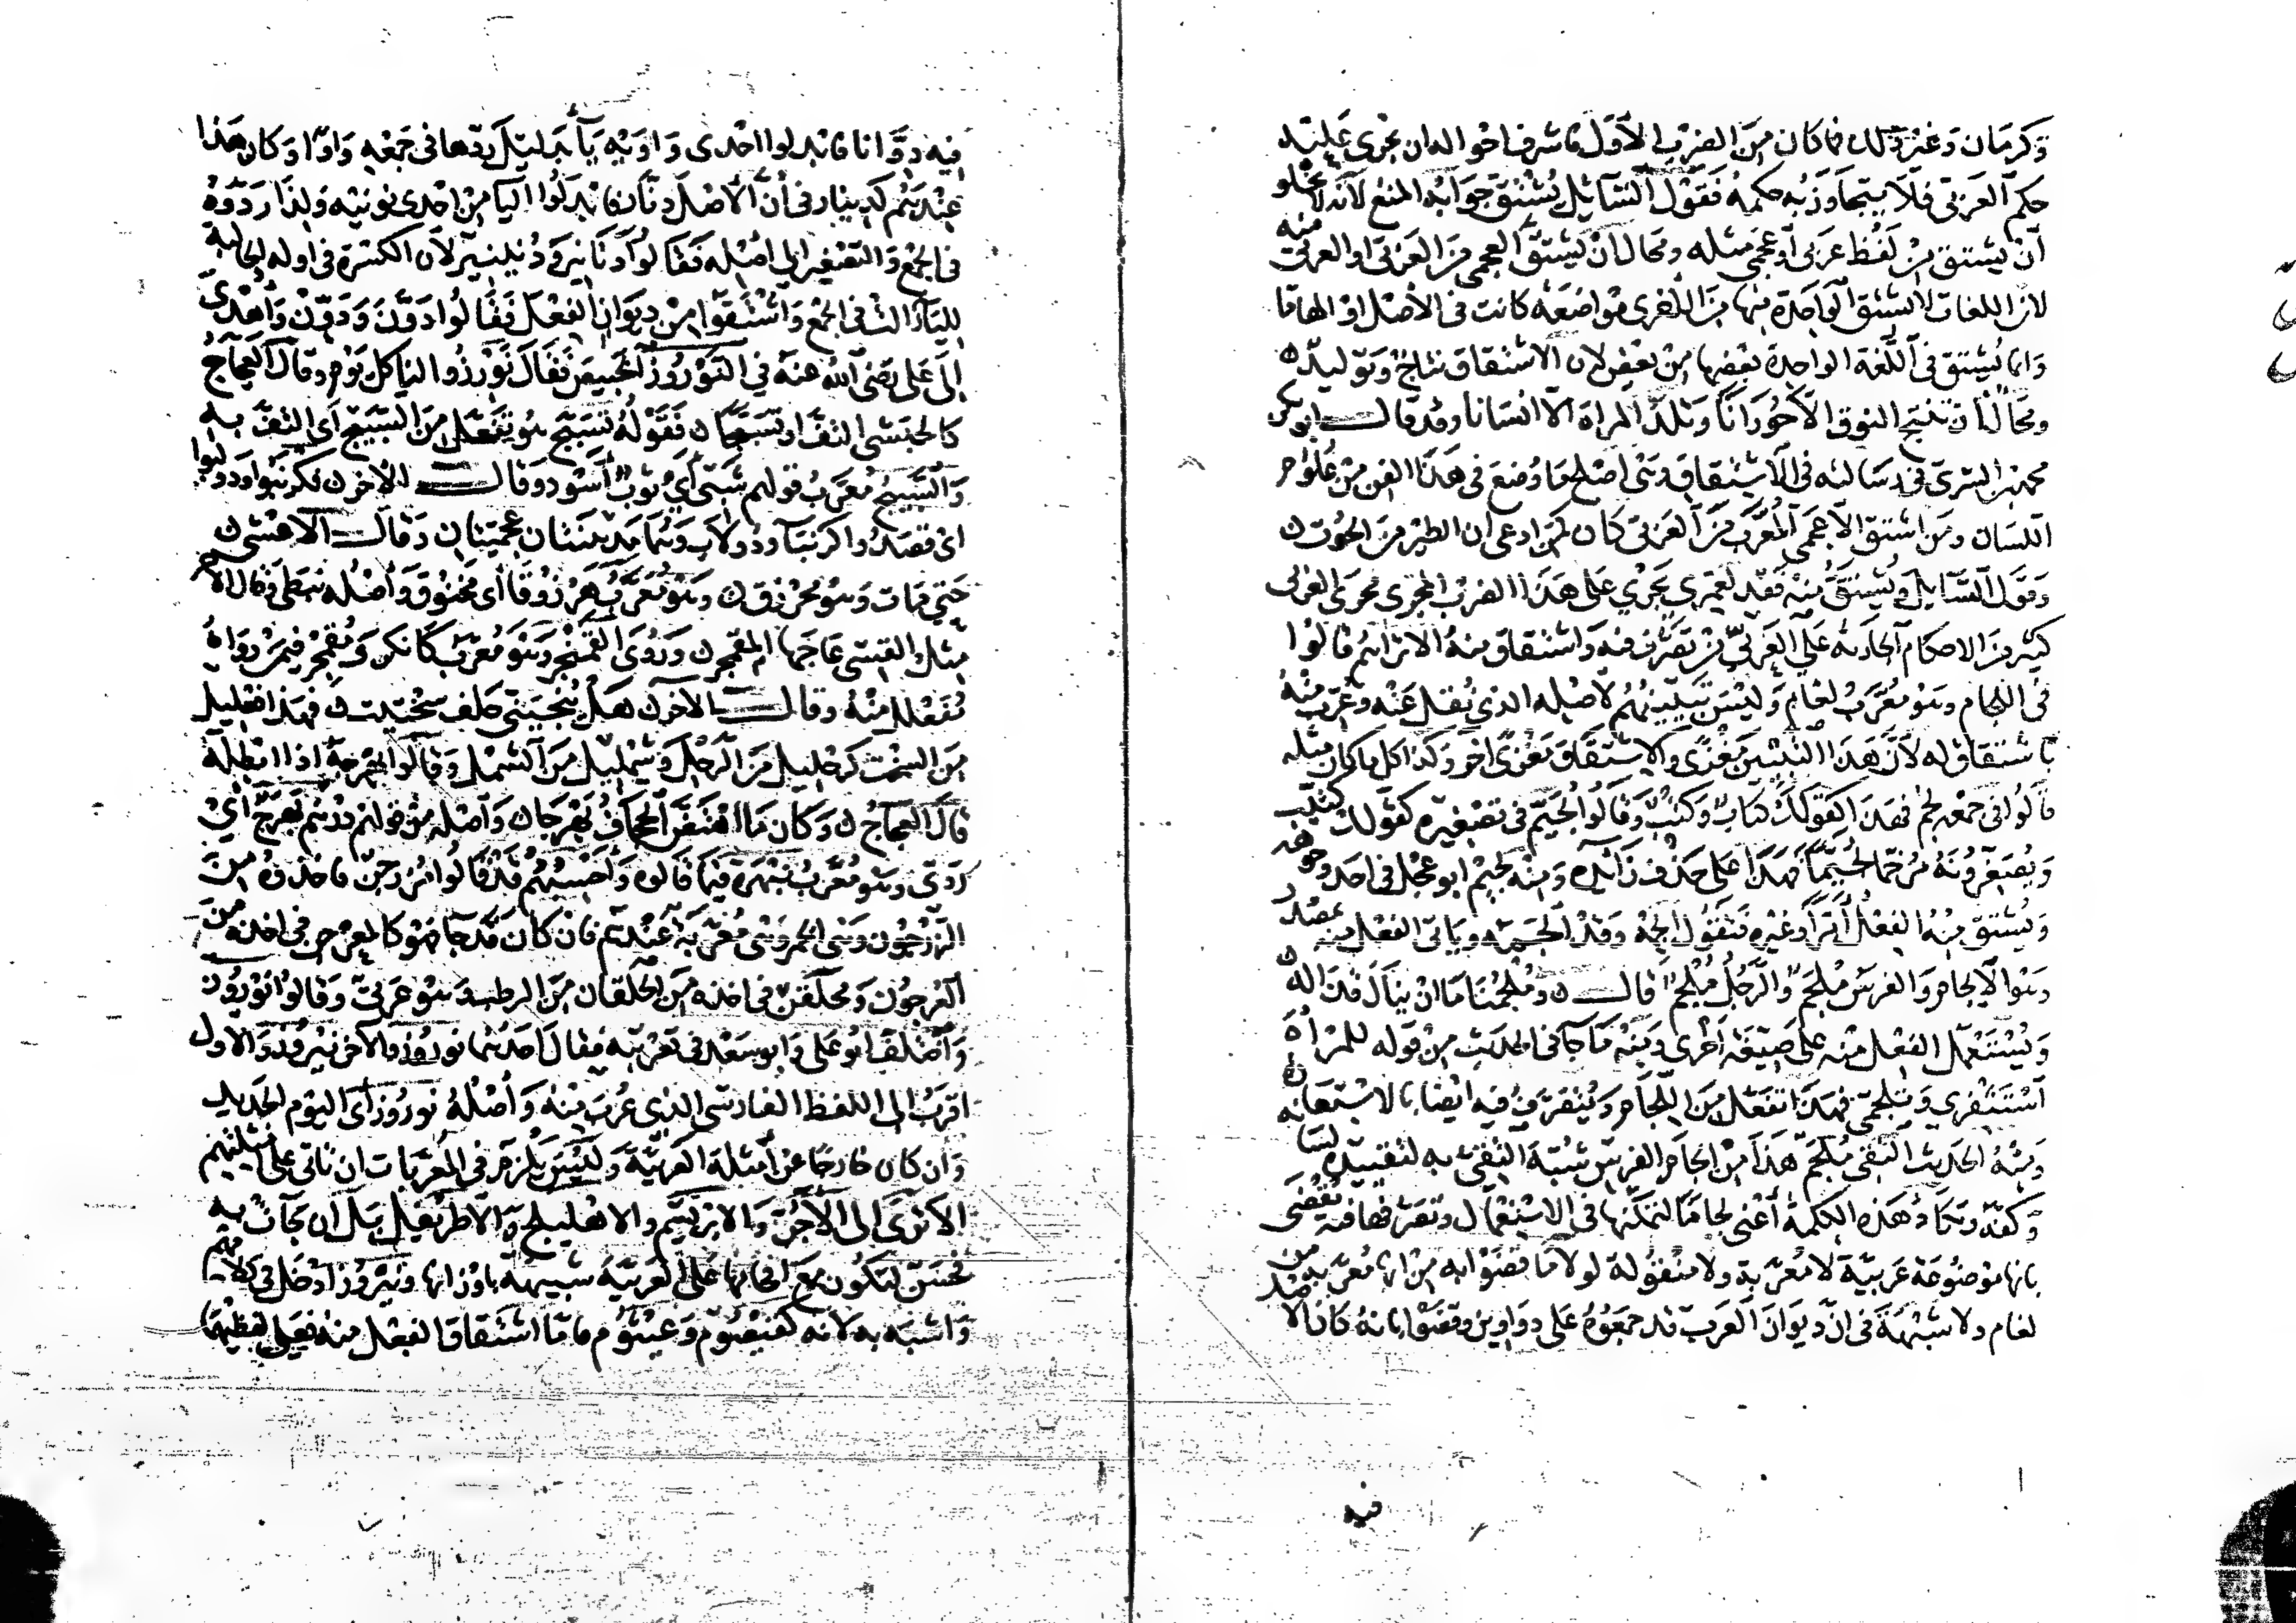 وكرمان وغير ذلك فما كان من الضرب الاول فاشرف احواله ان يجرى عليه
حكم العربى فلا يتجاوز به حكمه فقول السائل يشتق جوابه المنع لانه لا يخلو
أن يشتق من لفظ عربى أو عجمى مثله ومحال ان يشتق العجمى من العربى او العربى منه
لان اللغات لا تشتق الواحدة منها من الاخرى مواضعة كانت فى الأصل او الهاما
وانما يشتق فى اللغة الواحدة بعضها من بعض لان الاشتقاق نتاج وتوليد
ومحال أن تنتج النوق الا حورانا وتلد المراة الا انسانا وقد قال ابو بكر
محمد بن السرى فى رسالته فى الاشتقاق وهى اصلح ما وضع فى هذا الفن من علوم
اللسان ومن اشتق الاعجمى المعرب من العربى كان كمن ادعى ان الطير من الحوت
وقول السائل ويشتق منه فقد لعمرى يجرى على هذا الضرب المجرى مجرى العربى
كثير من الاحكام الجارية على العربى من تصرف فيه واشتقاق منه الا تراهم قالوا
فى اللجام وهو معرب لغام وليس تبيينهم لاصله الذى نقل عنه وعرب منه
باشتقاق له لان هذا التبيين مغزى والاشتقاق مغزى اخر وكذا كل ما كان مثله
قالوا فى جمعه لجم فهذا كقولك كتاب وكتب وقالوا لجيم فى تصغيره كقولك كتيب
ويصغرونه مرخما لجيما فهذا على حذف زائده ومنه لجيم ابو عجل فى احد وجوهه
ويشتق منه الفعل أمرا وغيره فتقول الجم وقد الجمه ويأتى الفعل منه مصدر
وهو الالجام والفرس ملجم والرجل ملجم قال وملجمنا ما ان ينال قذاله
ويستعمل الفعل منه على صيغة أخرى ومنه ما جآ فى الحديث من قوله للمرأة
استثفرى وتلجمى فهذا تفعل من اللجام ويتصرف فيه ايضا بالاستعارة
ومنه الحديث التقى ملجم هذا من الجام الفرس شبه التقى به لتقييد لسانه
وكفه وتكاد هذه الكلمة أعنى لجاما لتمكنها فى الاستعمال وتصرفها فيه تقضى
بانها موضوعة عربية لا معربة ولا منقولة لولا ما قضوا به من انها معربة من
لغام ولا شبهة فى ان ديوان العرب قد جمعوه على دواوين وقضوا بانه كان الاصل
فيه
فيه دوانا فابدلوا احدى واويه يآ بدليل ردها فى جمعه واوا وكان هذا
عندهم كدينار فى أن الأصل دنار فابدلوا اليا من احدى نونيه ولذا ردوه
فى الجمع والتصغير الى أصله فقالوا دنانير ودنينير لان الكسرة فى اوله الجالبة
لليآء زالت فى الجمع واشتقوا من ديوان الفعل فقالوا دون ودون وأهدى
الى على رضى الله عنه فى النوروز الخبيص فقال نورزوا لنا كل يوم وقال العجاج
كالحبشى التف او تسبجا فقوله تسبج هو تفعل من السبيج أى التف به
والسبيج معرب قولهم شبى أى ثوب أسود وقال الاخر فكرنبوا ودولبوا
اى قصدوا كرنبآ ودولاب وهما مدينتان عجميتان وقال الاعشى
حتى مات وهو محرزق وهو معرب هرزوقا أى مخنوق وأصله نبطى وقال الاخر
مثل القسى عاجها المقمجر وروى القمنجر وهو معرب كانكر ومقمجر فيمن رواه
مفعلل منه وقال الاخر هل ينجينى حلف سختيت فهذا فعليل
من السخت كرحليل من الرحل وشمليل من الشمل وقالوا بهرجه اذا ابطله
قال العجاج وكان ما اهتض الجحاف بهرجا وأصله من قولهم درهم بهرج أى
ردى وهو معرب نبهره فيما قالوه وأحسبهم قد قالوا مزرجن فاخذوه من
الزرجون وهى الخمر وهى معربة عندهم فان كان قد جآ فهو كالمعرجن فى اخذه من
العرجون ومحلقن فى اخذه من الحلقان من الرطب وهو عربى وقالوا نوروز
واختلف ابو على وابو سعيد فى تعريبه فقال احدهما نوروز والآخر نيروز والاول
اقرب الى اللفظ الفارسى الذى عرب منه وأصله نوروز أى اليوم الجديد
وان كان خارجا عن أمثلة العربية وليس يلزم فى المعربات ان تأتى على امثلتهم
الا ترى الى الآجر والابريسم والاهليلج والاطريفل بل ان جآت به
فحسن لتكون مع اقحامها على العربية شبيهة باوزانها ونيروز أدخل فى كلامهم
واشبه به لانه كقيصوم وعيثوم فاما اشتقاق الفعل منه فعلى لفظهما